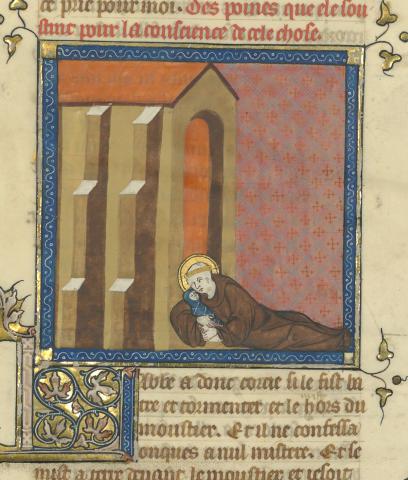 ce prie pour moi. Des poines que ele sou
stint pour la conscience de cele chose.
Abbe a donc coroie si le fist ba
tre et tormenter et le hors du
monstier. Et il ne confessa
onques a nul mistere. Et se
mist a terre deuant le monstier et iesoit